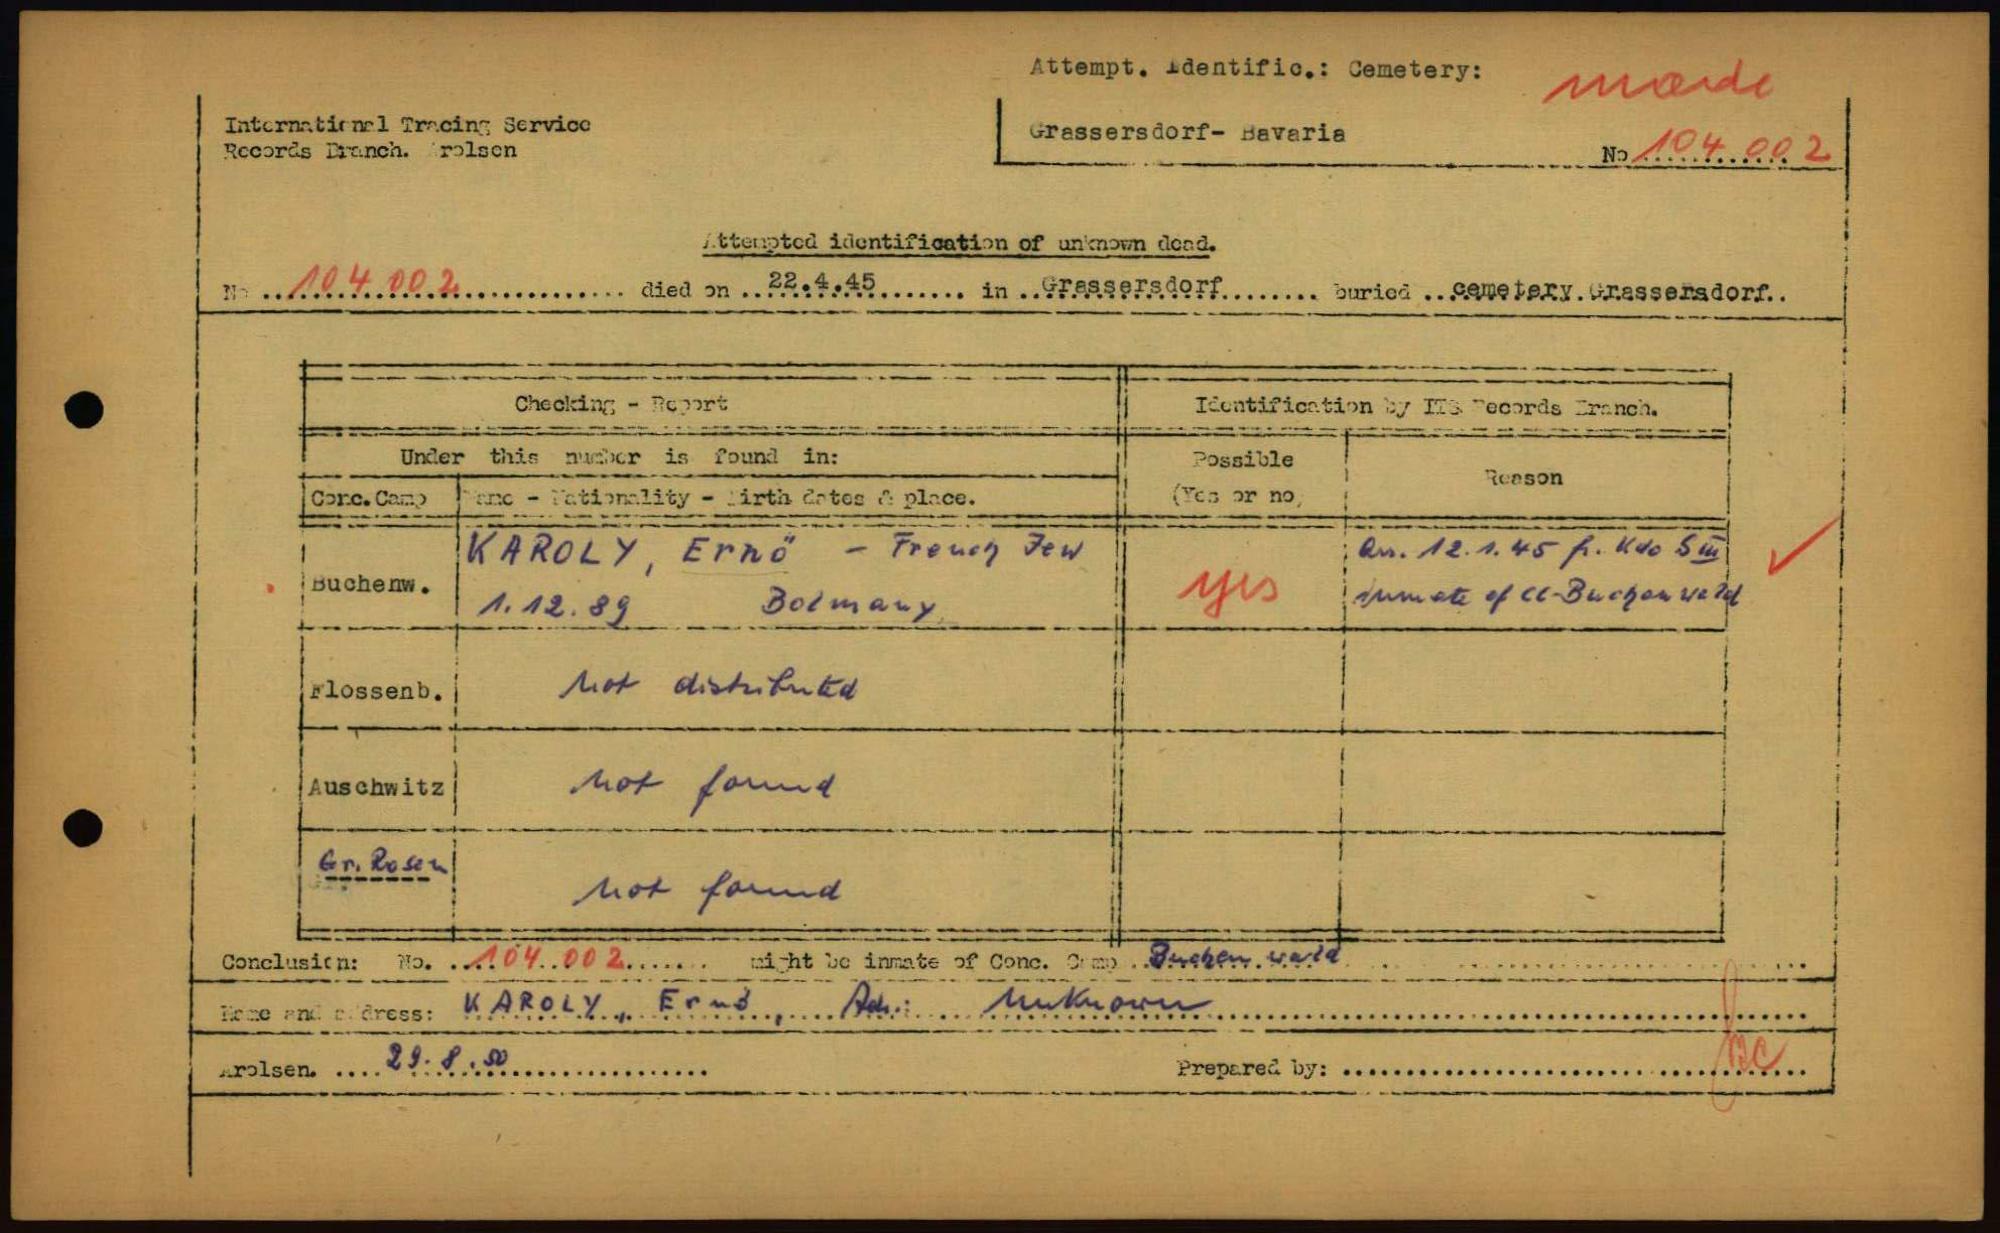 Attempt. Identific.: Cemetery:
made
International Tracing Service
Records Branch. Arolsen
Grassersdorf- Bavaria
No 104 002
Attempted identification of unknown dead.
No 104 002 died on 22.4.45 in Grassersdorf buried cemetery Grassersdorf.
Checking - Report
Identification by ITS Records Branch.
Under this number is found in:
Possible
(Yes or no)
Reason
Conc. Camp
Name - Nationality - Birth dates & place.
Buchenw.
KAROLY, Ernö - French Jew
1.12.89 Bolmany
yes
Arr. 12.1.45 fr. Kdo S III
inmate of CC-Buchenwald
Flossenb.
not distributed
Auschwitz
not found
Gr. Rosen
not found
Conclusion: No. 104 002 might be inmate of Conc. Camp Buchenwald
Name and address: KAROLY, Ernö, Adr.: unknown
Arolsen. 29.8.50
Prepared by: